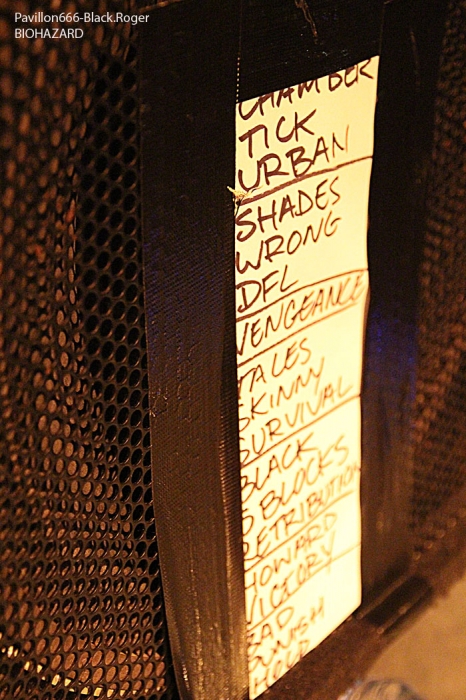 Pavillon666-Black.Roger
BIOHAZARD
CHAMBER
TICK
URBAN
SHADES
WRONG
DFL
VENGEANCE
TALES
SKINNY
SURVIVAL
BLACK
5 BLOCKS
RETRIBUTION
HOWARD
VICTORY
BAD
PUNISH
HOLD